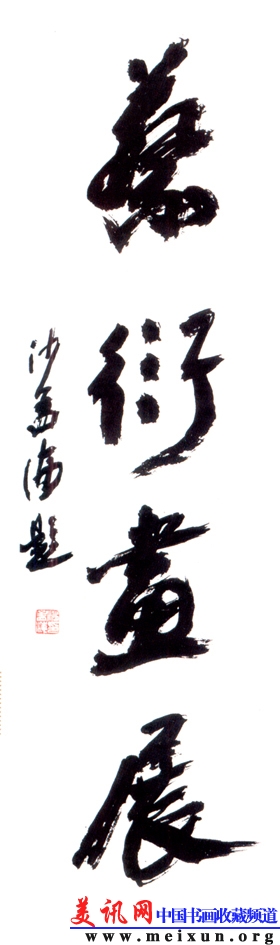 衍畫展
沙孟海題
美讯网 中国书画收藏频道
www.meixun.org